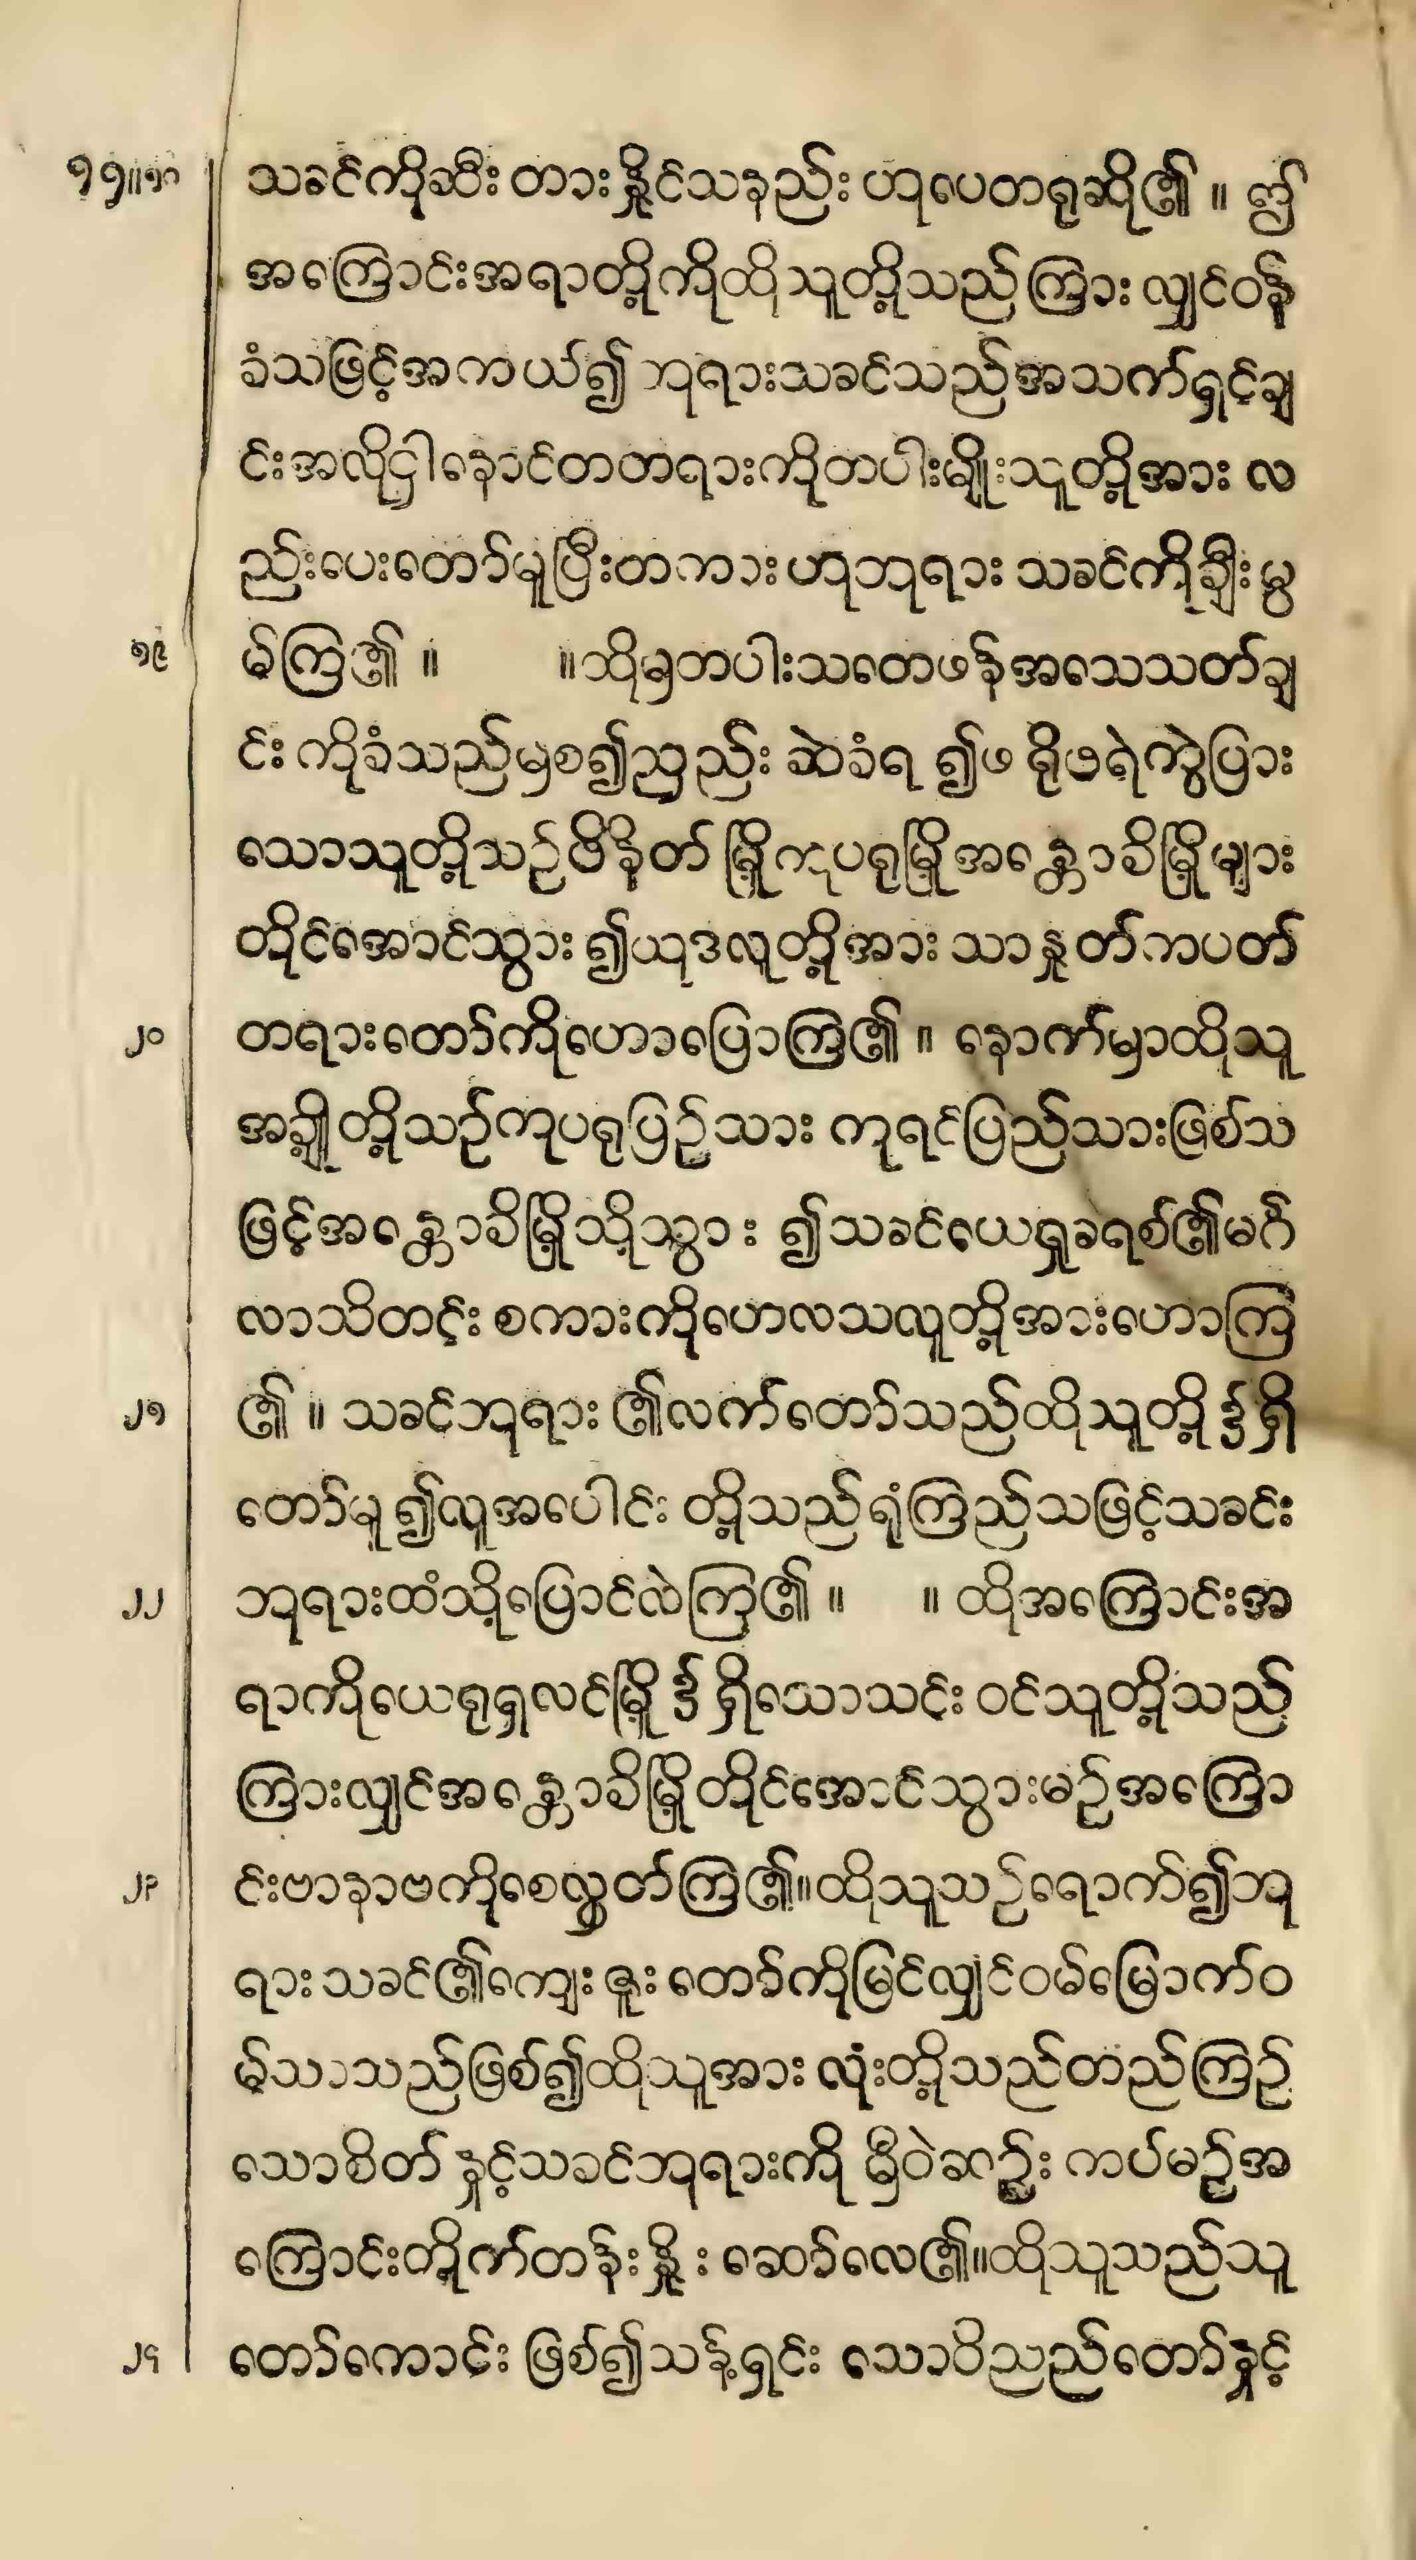 ၁၁။၁၈ သခင်ကိုဆီးတားနှိုင်သနည်းဟုပေတရုဆို၏။ ဤ
အကြောင်းအရာတို့ကိုထိုသူတို့သည်ကြားလျှင်ဝန်
ခံသဖြင့်အကယ်၍ဘုရားသခင်သည်အသက်ရှင့်ချ
င်းအလိုဌါနောင်တတရားကိုတပါးမျိုးသူတို့အားလ
ည်းပေးတော်မူပြီးတကားဟုဘုရားသခင်ကိုချီးမွ
၁၉ မ်ကြ၏။ ။ထိုမှတပါးသတေဖန်အသေသတ်ချ
င်းကိုခံသည်မှစ၍ညှည်းဆဲခံရ၍ဖရိုဖရဲကွဲပြား
သောသူတို့သဉ်ဖိနိတ်မြို့ကုပရုမြို့အန္တောခိမြို့များ
တိုင်အောင်သွား၍ယုဒလူတို့အားသာနှုတ်ကပတ်
၂၀ တရားတော်ကိုဟောပြောကြ၏။ နောက်မှာထိုသူ
အချို့တို့သဉ်ကုပရုပြဉ်သားကုရင်ပြည်သားဖြစ်သ
ဖြင့်အန္တောခိမြို့သို့သွား၍သခင်ယေရှုခရစ်၏မင်္ဂ
လာသိတင်းစကားကိုဟေလသလူတို့အားဟောကြ
၂၁ ၏။ သခင်ဘုရား၏လက်တော်သည်ထိုသူတို့၌ရှိ
တော်မူ၍လူအပေါင်းတို့သည်ရုံကြည်သဖြင့်သခင်း
၂၂ ဘုရားထံသို့ပြောင်လဲကြ၏။ ။ထိုအကြောင်းအ
ရာကိုယေရုရှလင်မြို့၌ရှိသောသင်းဝင်သူတို့သည်
ကြားလျှင်အန္တောခိမြို့တိုင်အောင်သွားမဉ်အကြော
၂၃ င်းဗာနာဗကိုစေလွှတ်ကြ၏။ထိုသူသဉ်ရောက်၍ဘု
ရားသခင်၏ကျေးဇူးတော်ကိုမြင်လျှင်ဝမ်မြောက်ဝ
မ်သာသည်ဖြစ်၍ထိုသူအားလုံးတို့သည်တည်ကြဉ်
သောစိတ်နှင့်သခင်ဘုရားကိုမှီဝဲဆဉ်းကပ်မဉ်အ
ကြောင်းတိုက်တန်းနှိုးဆော်လေ၏။ထိုသူသည်သူ
၂၄ တော်ကောင်းဖြစ်၍သန့်ရှင်းသောဝိညည်တော်နှင့်